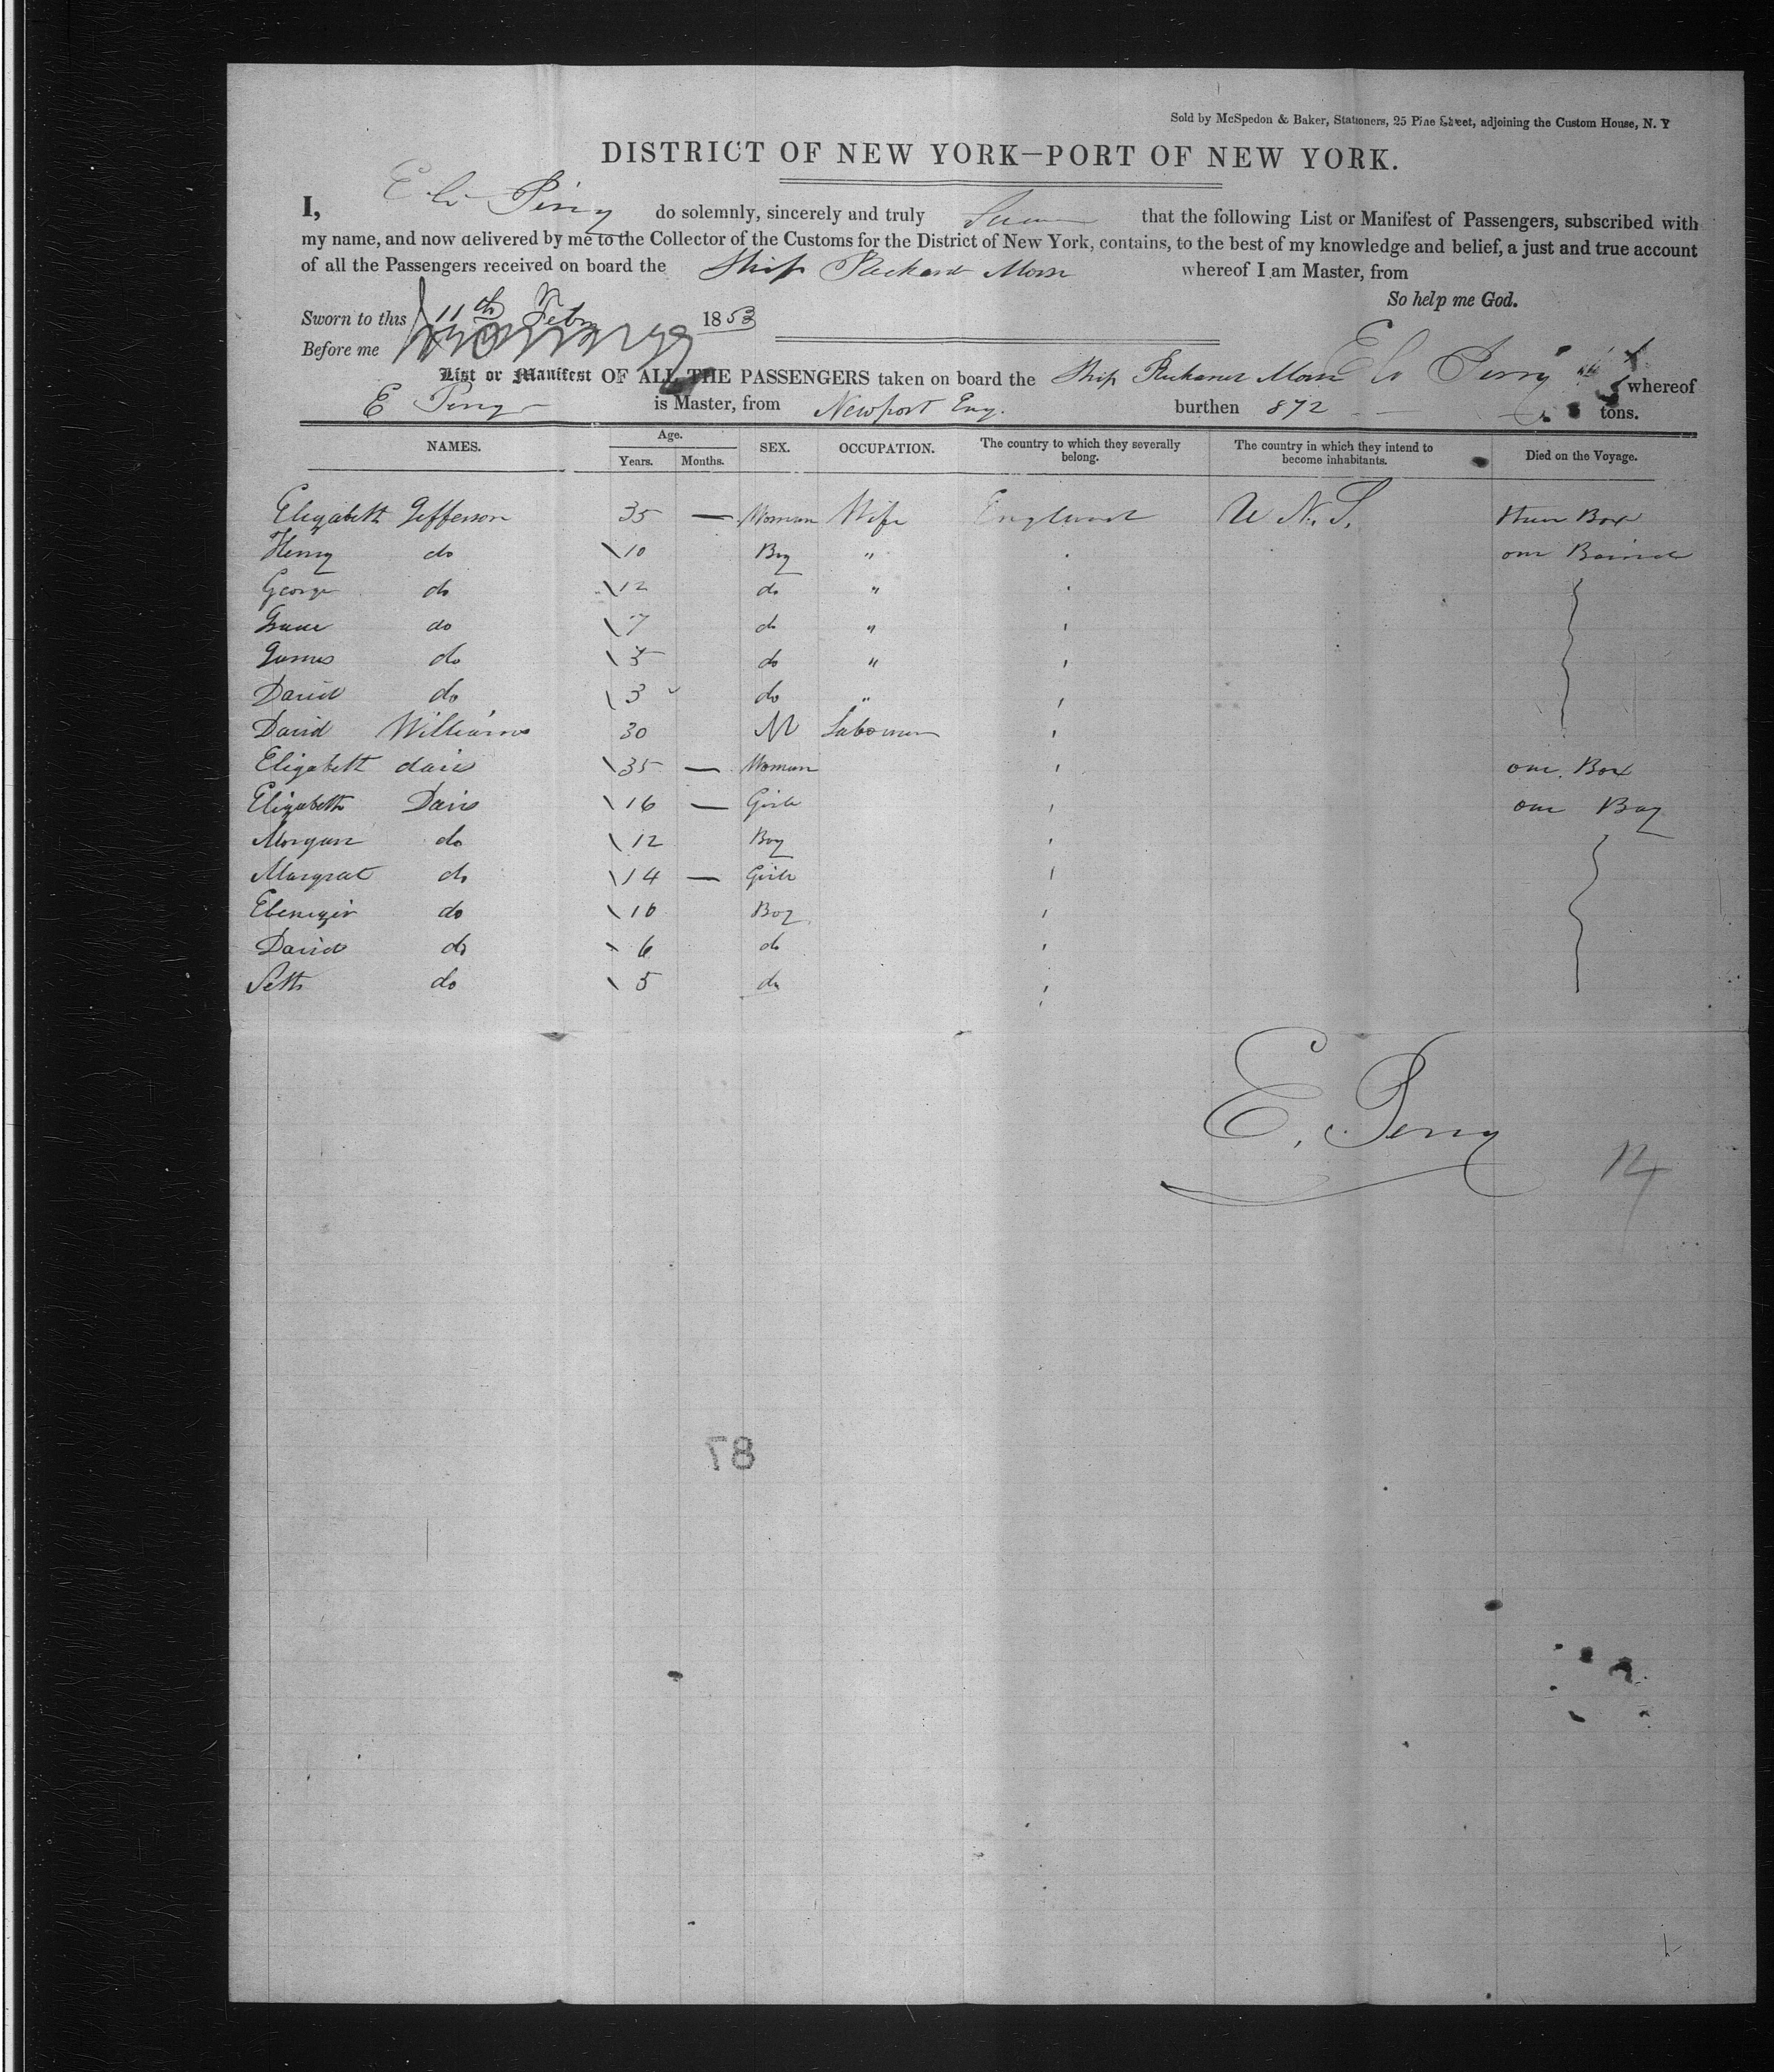 Sold by McSpedon & Baker, Stationers, 25 Pine Street, adjoining the Custom House, N. Y
DISTRICT OF NEW YORK—PORT OF NEW YORK.
I, E Perry do solemnly, sincerely and truly that the following List or Manifest of Passengers, subscribed with
my name, and now delivered by me to the Collector of the Customs for the District of New York, contains, to the best of my knowledge and belief, a just and true account
of all the Passengers received on board the Ship Richard Morse whereof I am Master, from
So help me God.
Sworn to this 11th Feby 1853
Before me
E Perry
List or Manifest OF ALL THE PASSENGERS taken on board the Ship Richard Morse whereof
E Perry is Master, from Newport Eng. burthen 872 tons.
NAMES. Age. Years. Months. SEX. OCCUPATION. The country to which they severally belong. The country in which they intend to become inhabitants. Died on the Voyage.
Elizabeth Jefferson 35 — Woman Wife England U N. S.
Henry do \ 10 Boy "
George do \ 12 do "
do \ 7 do "
James do \ 5 do "
David do \ 3 do "
David Williams 30 M
Elizabeth davis \ 35 — Woman one Box
Elizabeth Davis \ 16 — Girle one Bag
Morgan do \ 12 Boy
Margrat do \ 14 — Girle
Ebenezir do \ 10 Boy
David do \ 6 do
Seth do \ 5 do
E. Perry
14
87